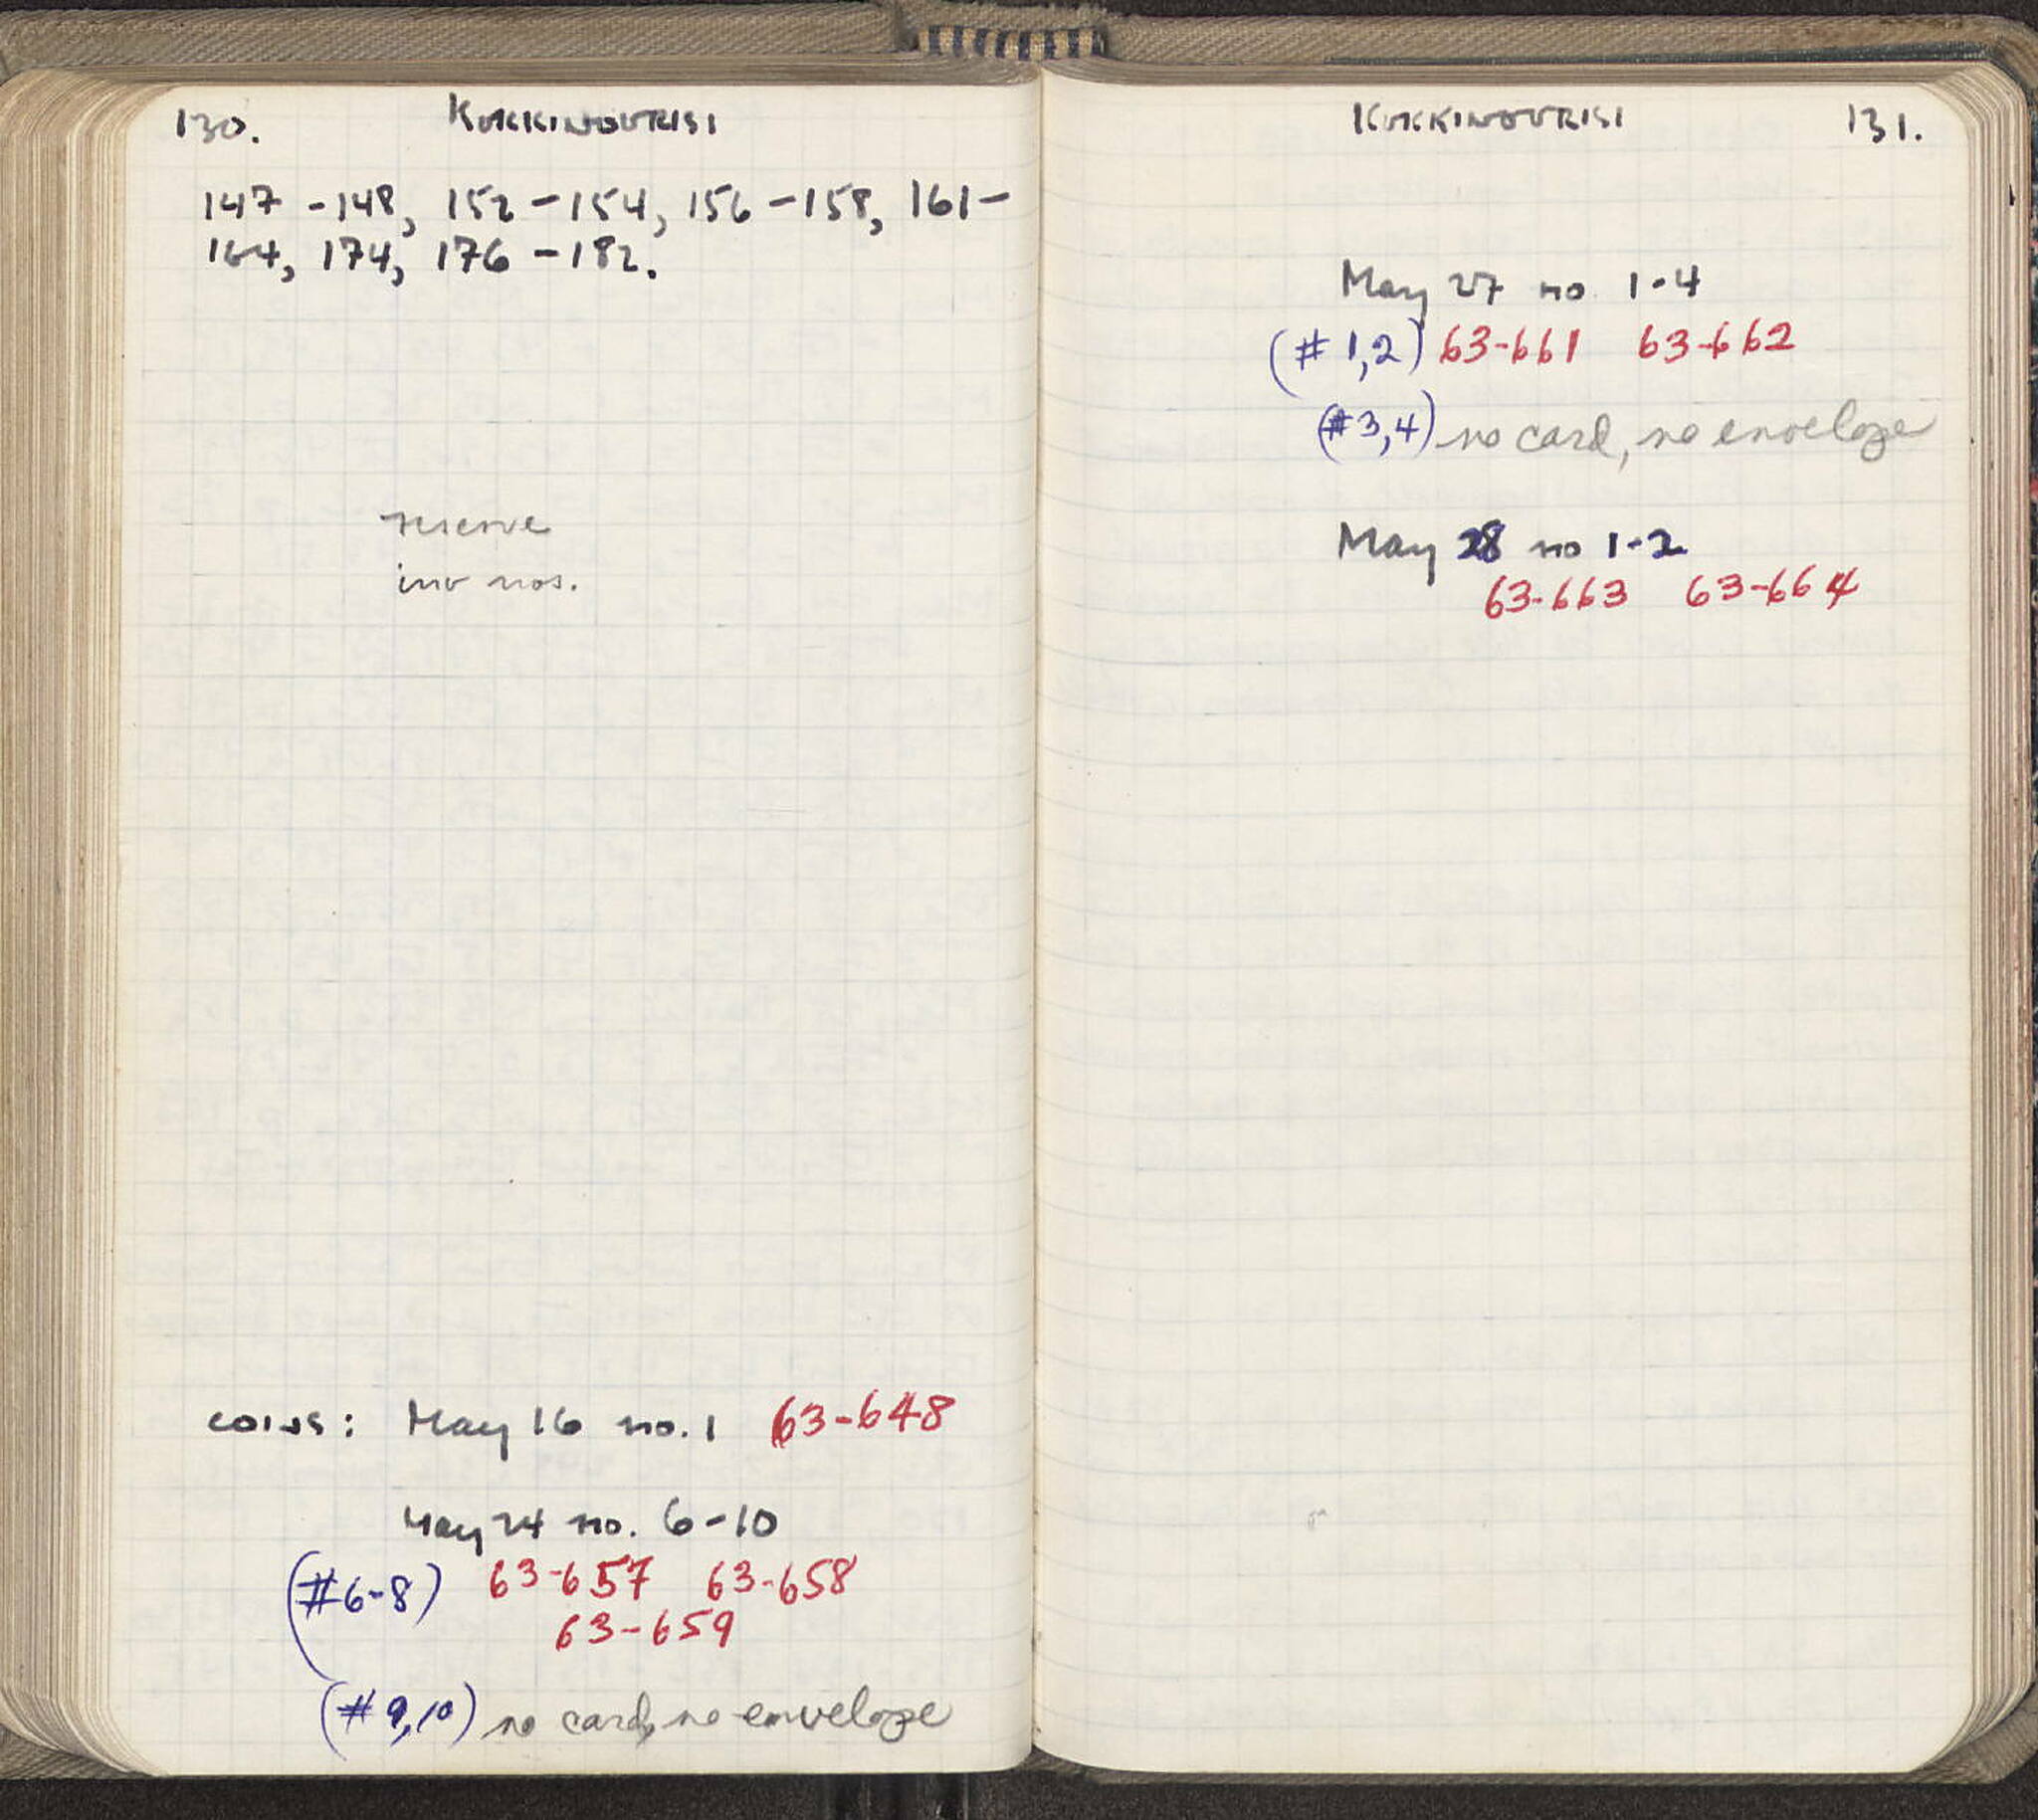 130. KOKKINOVRISI
147 - 148, 152 - 154, 156 - 158, 161 -
164, 174, 176 - 182.
reserve
inv nos.
coins: May 16 no. 1 63-648
May 24 no. 6-10
(#6-8) 63-657 63-658
63-659
(#9,10) no card, no envelope
KOKKINOVRISI 131.
May 27 no 1-4
(#1,2) 63-661 63-662
(#3,4) no card, no envelope
May 28 no 1-2
63-663 63-664